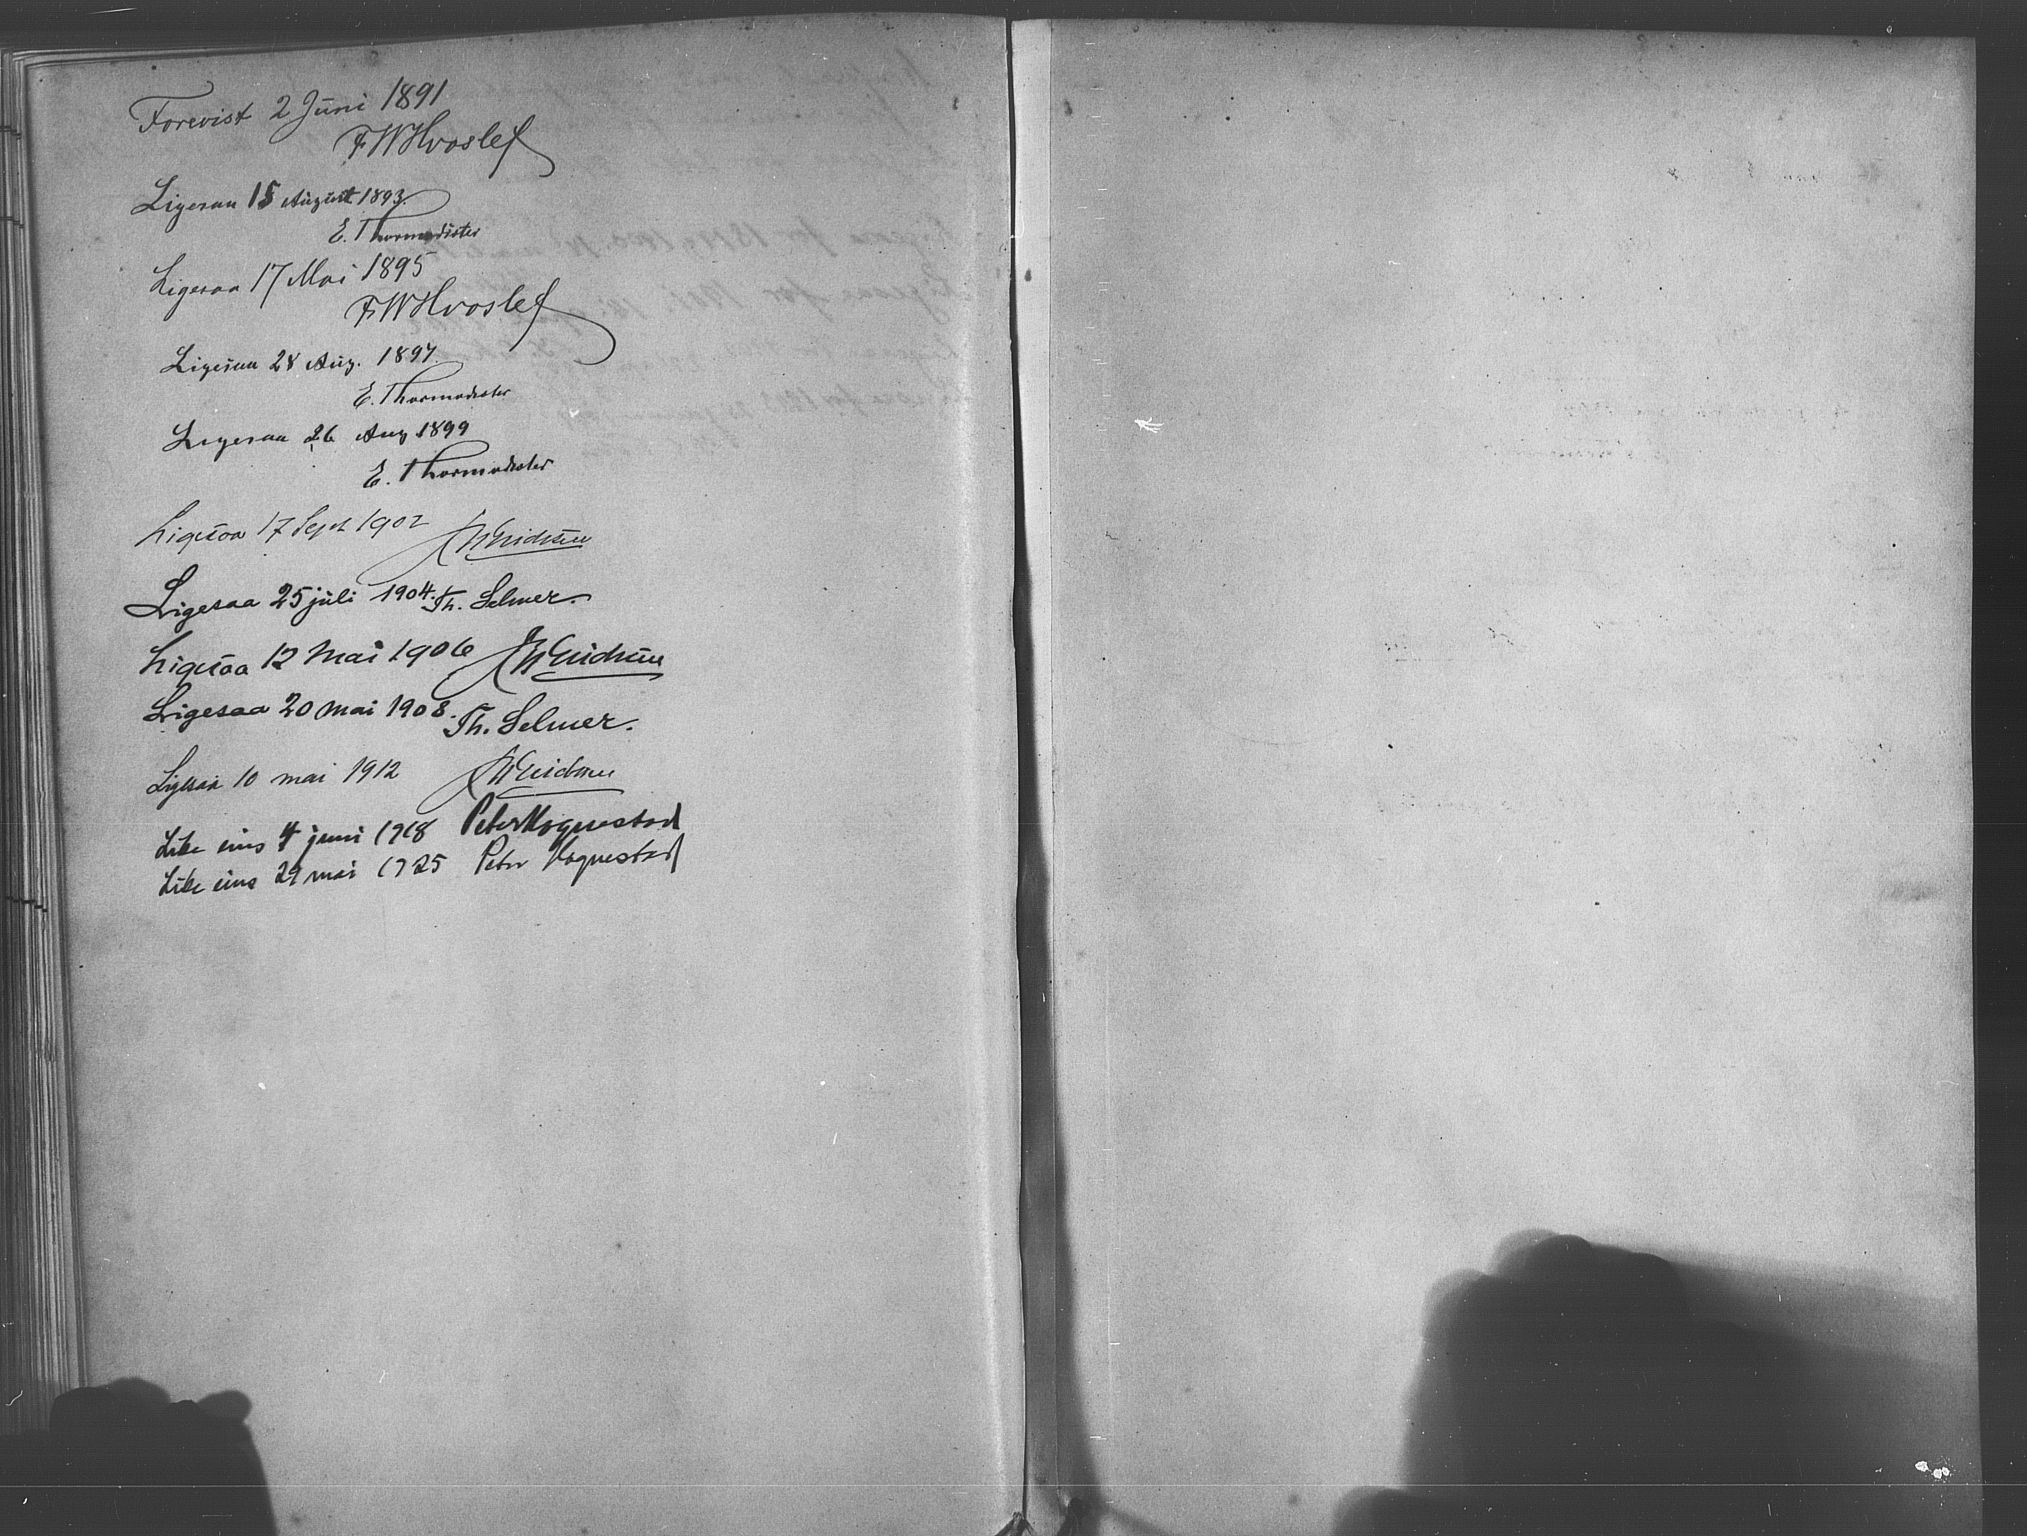 Forevist 2 Juni 1891
FWHvoslef
Ligesaa 15 August 1893.
E. Thormodsæter
Ligesaa 17 Mai 1895
FWHvoslef
Ligesaa 28 Aug. 1897.
E. Thormodsæter
Ligesaa 26 Aug 1899
E. Thormodsæter
Ligesaa 17 Sept 1902
Ligesaa 25 juli 1904. Th. Selmer.
Ligesaa 12 Mai 1906
Ligesaa 20 mai 1908. Th. Selmer.
Ligesaa 10 mai 1912
Like eins 4 juni 1918 Peter Hognestad
Like eins 29 mai 1925 Peter Hognestad